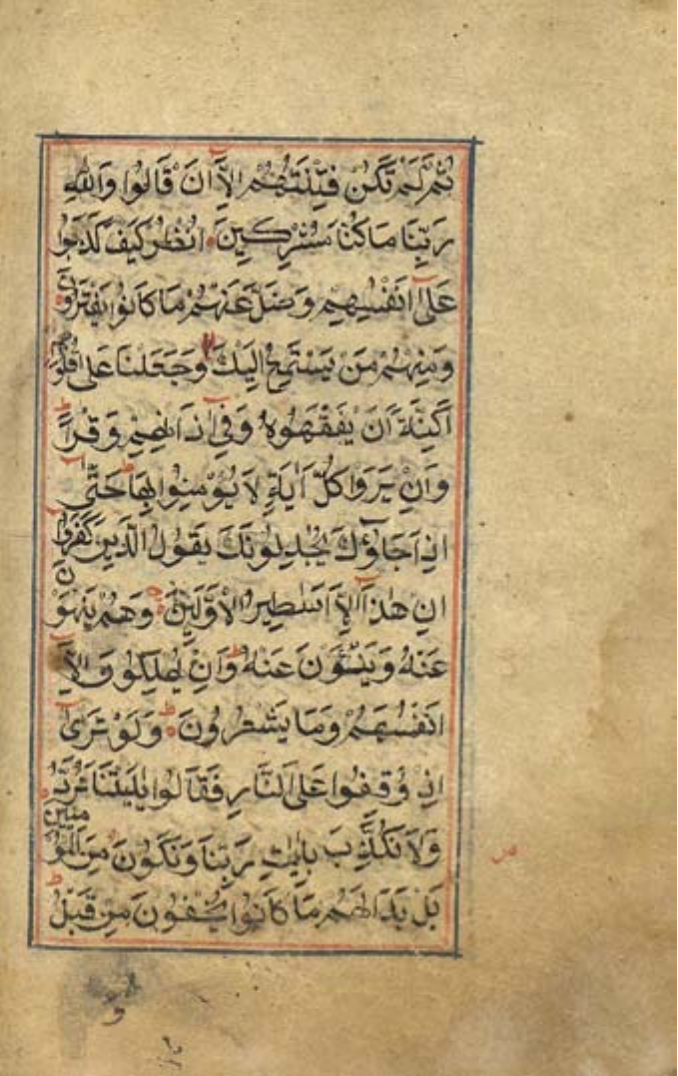 ثُمَّ لَمْ تَكُنْ فِتْنَتُهُمْ اِلَّآ اَنْ قَالُوا وَاللّٰهِ
رَبِّنَا مَا كُنَّا مُشْرِكِينَ اُنْظُرْ كَيْفَ كَذَبُوا
عَلٰٓى اَنْفُسِهِمْ وَضَلَّ عَنْهُمْ مَا كَانُوا يَفْتَرُونَ
وَمِنْهُمْ مَنْ يَسْتَمِعُ اِلَيْكَ وَجَعَلْنَا عَلٰى قُلُوبِهِمْ
اَكِنَّةً اَنْ يَفْقَهُوهُ وَفِىٓ اٰذَانِهِمْ وَقْرًا
وَاِنْ يَرَوْا كُلَّ اٰيَةٍ لَا يُؤْمِنُوا بِهَا حَتّٰٓى
اِذَا جَاؤُكَ يُجٰدِلُونَكَ يَقُولُ الَّذِينَ كَفَرُوٓا
اِنْ هٰذَآ اِلَّآ اَسٰطِيرُ الْاَوَّلِينَ وَهُمْ يَنْهَوْنَ
عَنْهُ وَيَنْـَٔوْنَ عَنْهُ وَاِنْ يُهْلِكُونَ اِلَّآ
اَنْفُسَهُمْ وَمَا يَشْعُرُونَ وَلَوْ تَرٰٓى
اِذْ وُقِفُوا عَلَى النَّارِ فَقَالُوا يٰلَيْتَنَا نُرَدُّ
وَلَا نُكَذِّبَ بِاٰيٰتِ رَبِّنَا وَنَكُونَ مِنَ الْمُؤْمِنِينَ
بَلْ بَدَا لَهُمْ مَا كَانُوا يُخْفُونَ مِنْ قَبْلُ
ص
و